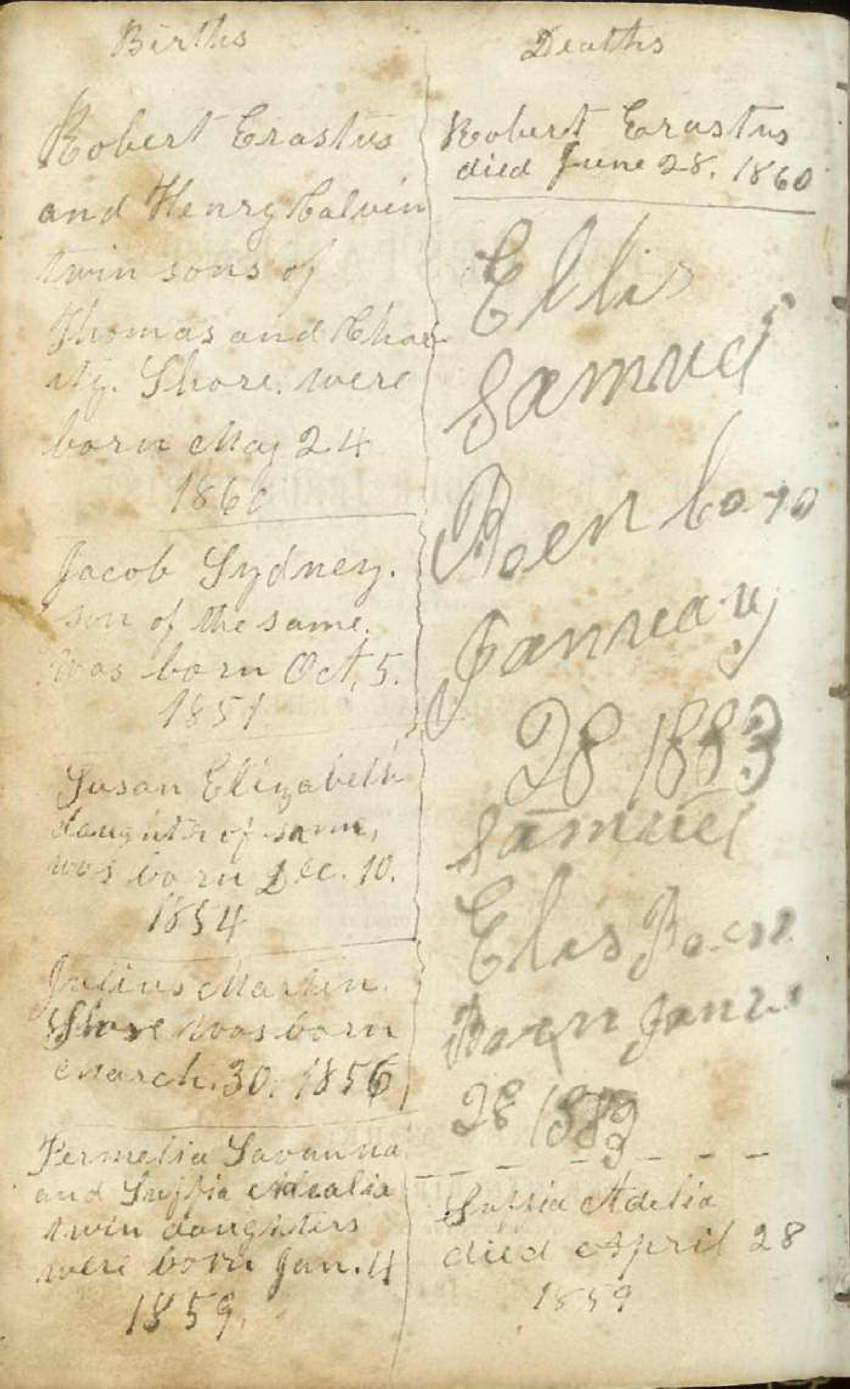 Births
Robert Erastus
and Henry Calvin
twin sons of
Thomas and Char
ity. Shore. were
born May 24
1860
Jacob Sydney.
son of the same.
was born Oct, 5.
1851
Susan Elizabeth
daughter of same,
was born Dec. 10.
1854
Julius Martin.
Shore was born
March. 30. 1856,
Permelia Savanna
and Suffia Adealia
twin daughters
were born Jan. 4
1859.
Deaths
Robert Erastus
died June 28. 1860
Ellis
Samuel
Boen
28 1883
Samuel
Elis Boen
Boern
28 1883
Suffia Adelia
died April 28
1859